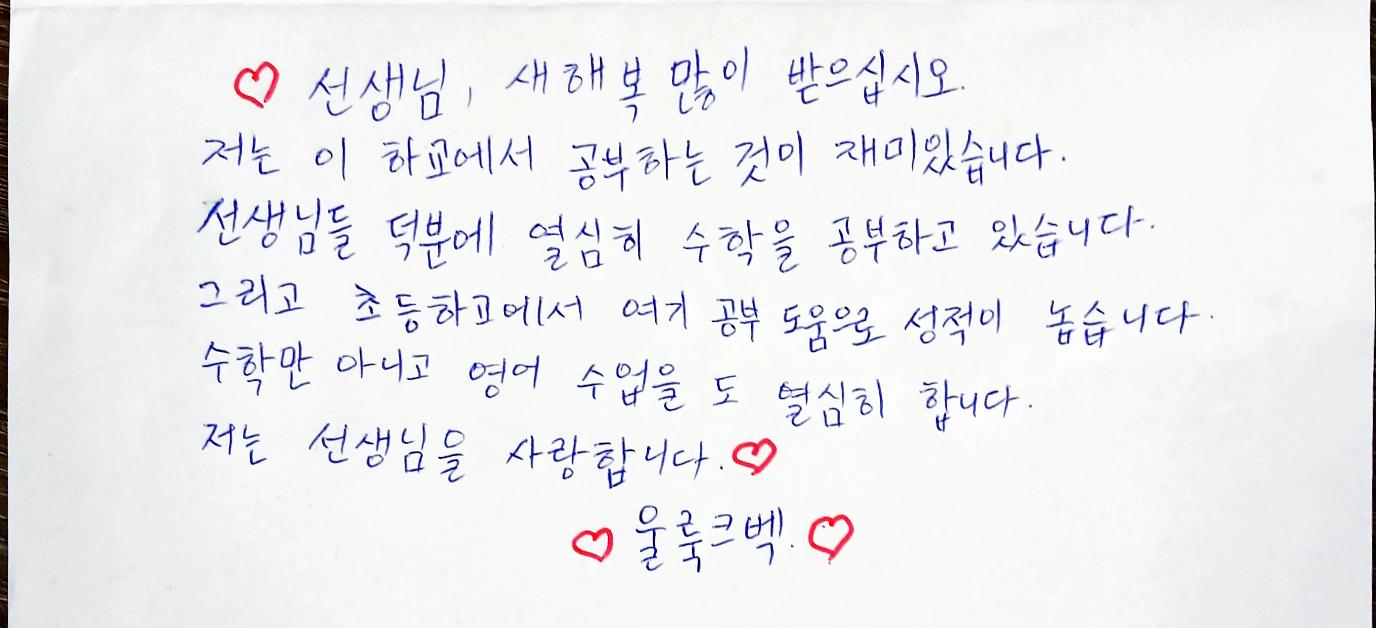 ♡ 선생님, 새해복 많이 받으십시오.
저는 이 하교에서 공부하는 것이 재미있습니다.
선생님들 덕분에 열심히 수학을 공부하고 있습니다.
그리고 초등하교에서 여기 공부 도움으로 성적이 놉습니다.
수학만 아니고 영어 수업을 도 열심히 합니다.
저는 선생님을 사랑합니다. ♡
♡ 울룩크벡. ♡